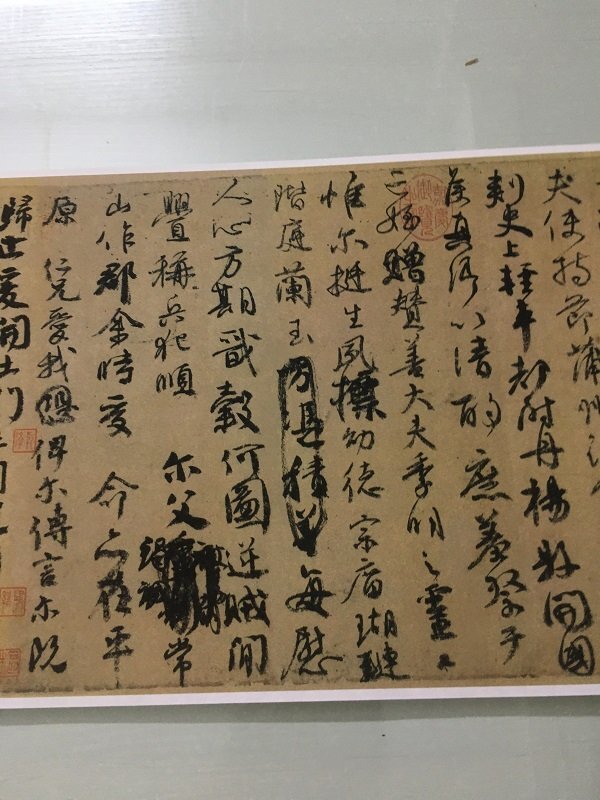 夫使持節蒲州諸
刺史上輕車都尉丹楊縣開國
侯真卿以清酌庶羞祭于
亡姪贈贊善大夫季明之靈曰
惟爾挺生夙標幼德宗廟瑚璉
階庭蘭玉方憑積善每慰
人心方期戩穀何圖逆賊閒
釁稱兵犯順爾父竭誠常
山作郡余時受命亦在平
原仁兄愛我俾爾傳言爾既
歸止爰開土門土門